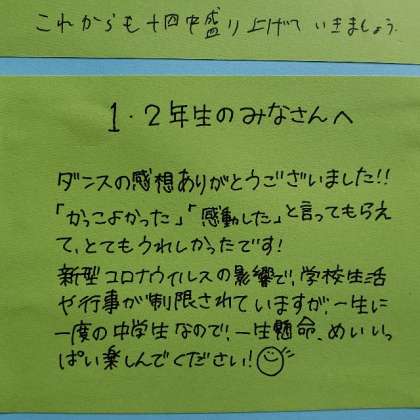 これからも十四中盛り上げていきましょう.
1・2年生のみなさんへ
ダンスの感想ありがとうございました!!
「かっこよかった」「感動した」と言ってもらえ
て、とてもうれしかったです!
新型コロナウイルスの影響で、学校生活
や行事が制限されていますが、一生に
一度の中学生なので、一生懸命、めいいっ
ぱい楽しんでください!